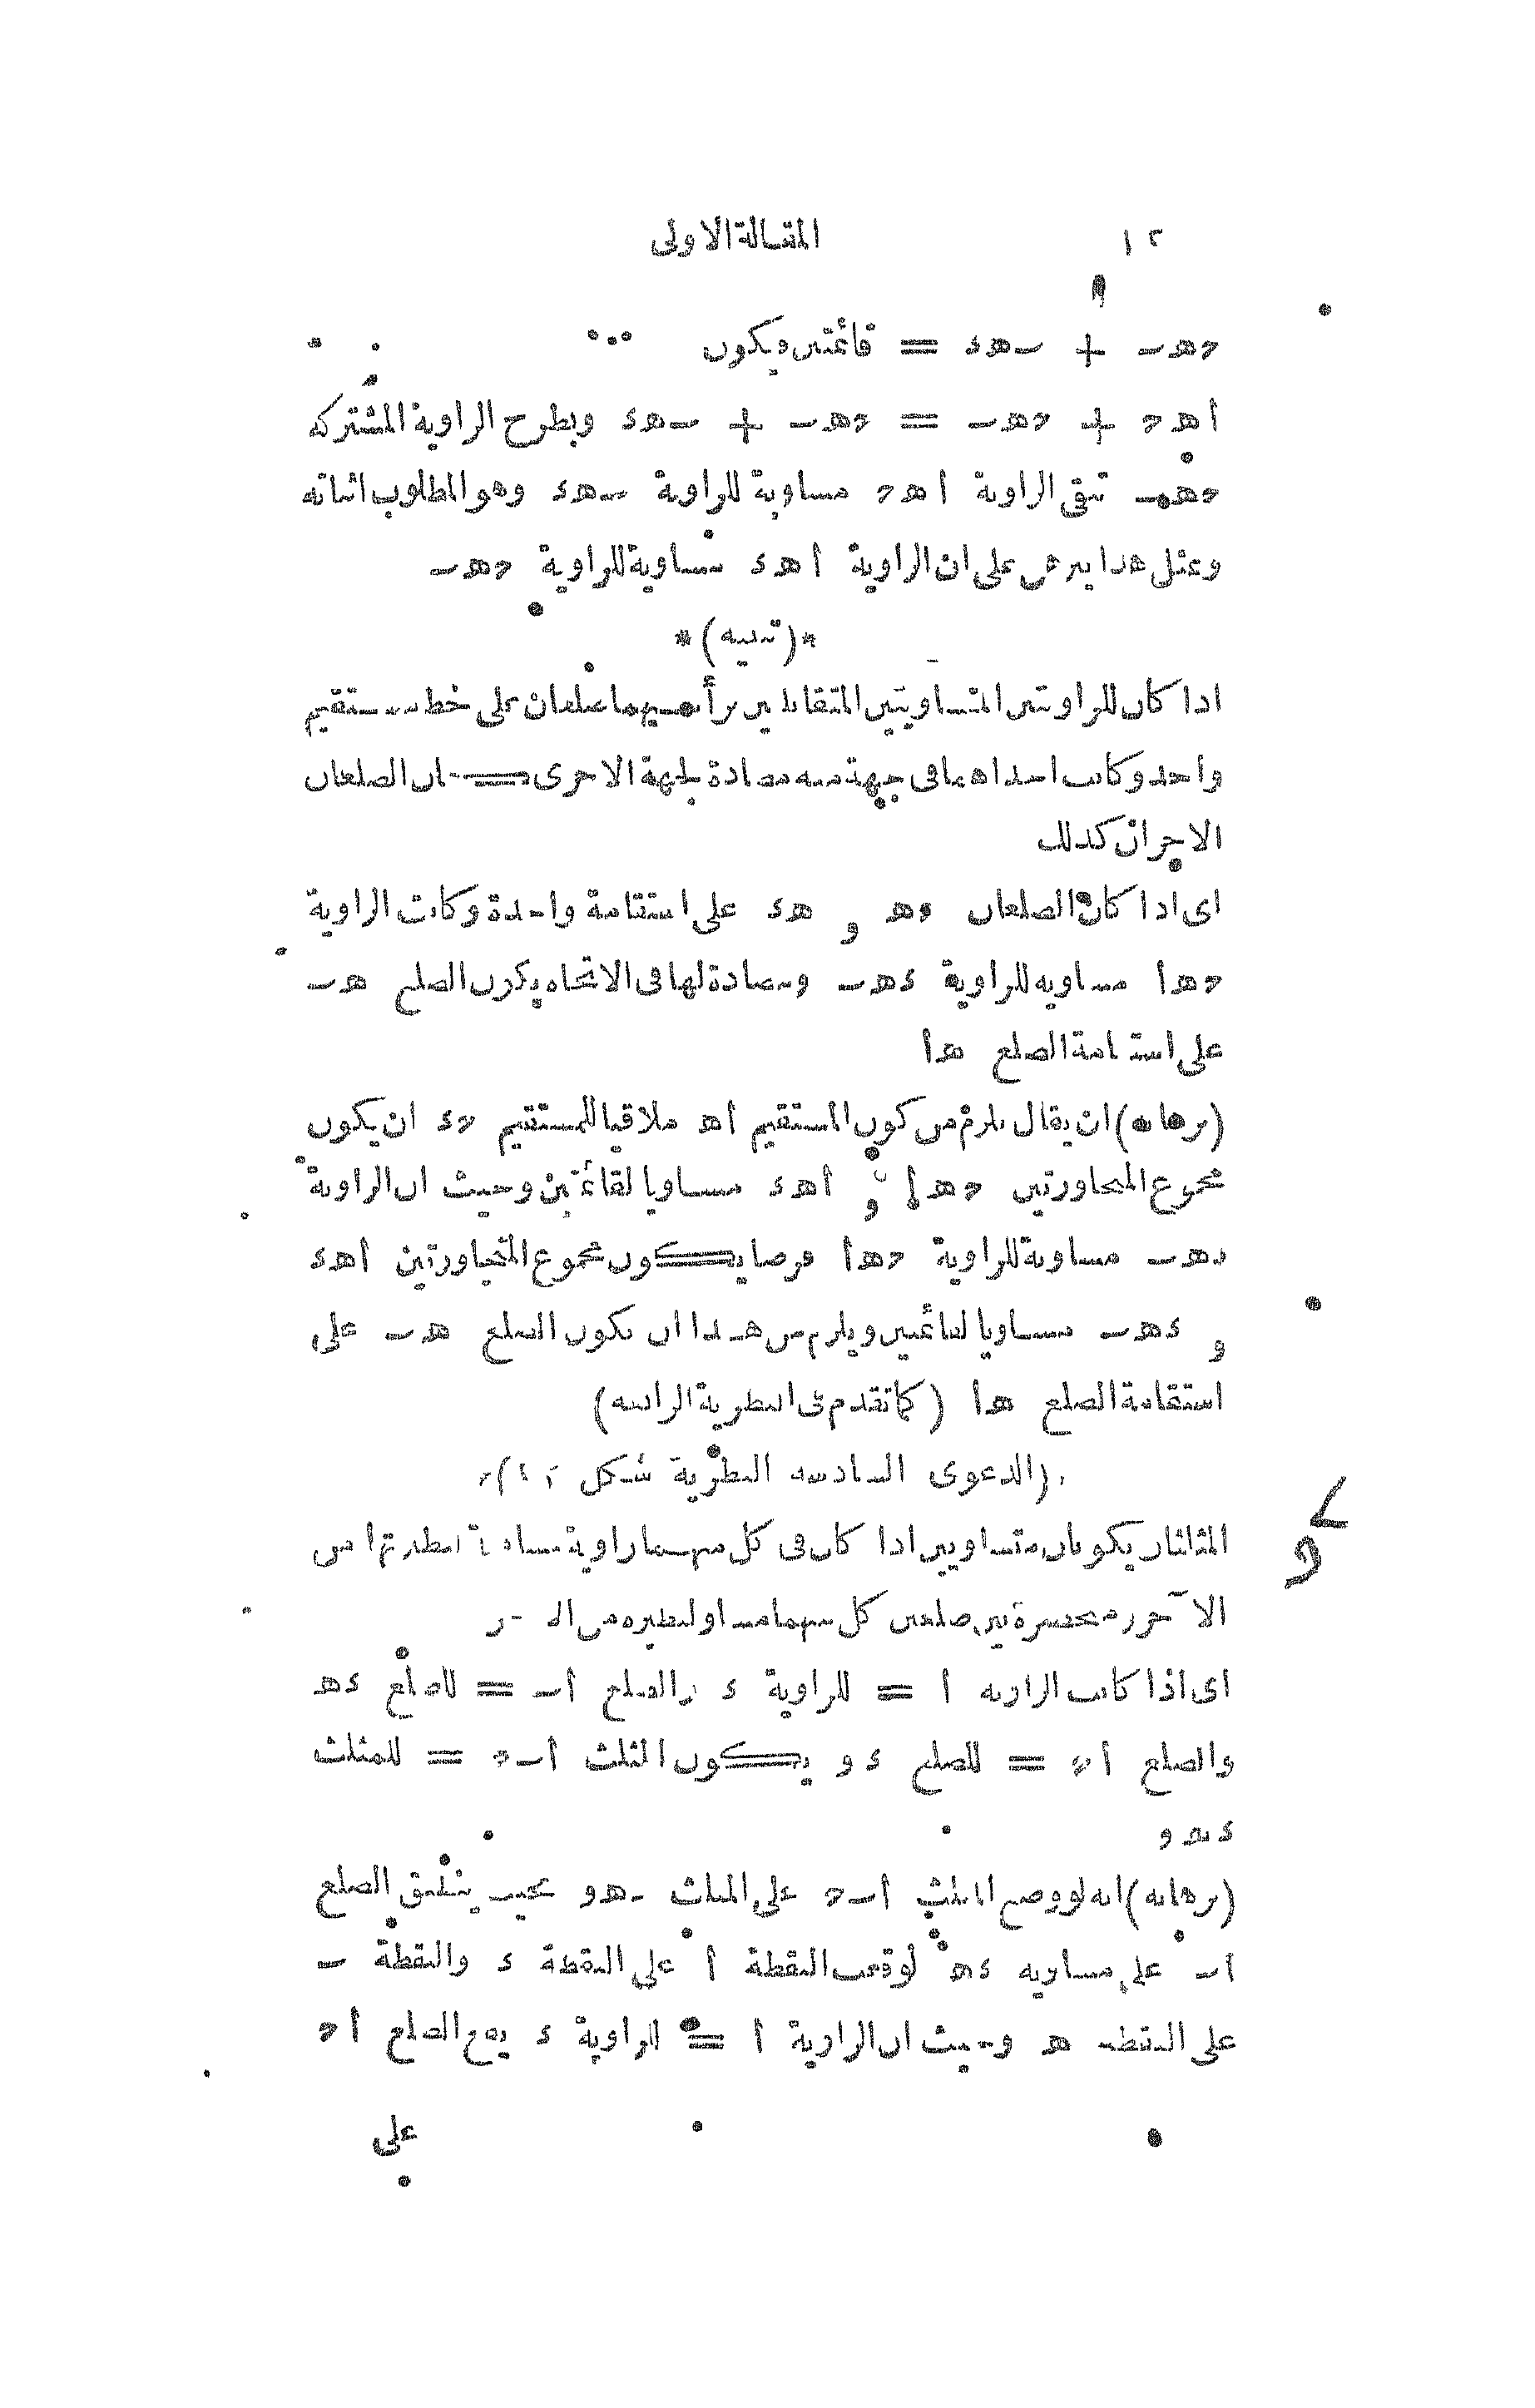 ١٢ المقالة الاولى
حهـ + ـهء = قائمتين ويكون
أهح + حهـ = حهـ + ـهء وبطرح الزاوية المشتركة
حهـ تبقى الزاوية أهح مساوية للزاوية ـهء وهو المطلوب اثباته
وبمثل هذا يبرهن على ان الزاوية أهء مساوية للزاوية حهـ
*(تنبيه)*
اذا كان للزاويتين المتساويتين المتقابلتين برأسيهما ضلعان على خط مستقيم
واحد وكانت احداهما فى جهة منه مضادة لجهة الاخرى يكون الضلعان
الاخران كذلك
اى اذا كان الضلعان حه و هء على استقامة واحدة وكانت الزاوية
حهأ مساويه للزاوية ءهـ ومضادة لها فى الاتجاه يكون الضلع هـ
على استقامة الضلع هأ
(برهانه) ان يقال يلزم من كون المستقيم أه ملاقيا للمستقيم حء ان يكون
مجموع المتجاورتين حهأ و أهء مساويا لقائمتين وحيث ان الزاوية
ءهـ مساوية للزاوية حهأ فرضا يكون مجموع المتجاورتين أهء
و ءهـ مساويا لقائمتين ويلزم من هذا ان يكون الضلع هـ على
استقامة الضلع هأ (كما تقدم فى النظرية الرابعه)
(الدعوى السادسه النظرية شكل)
المثلثان يكونان متساويين اذا كان فى كل منهما زاوية مساوية لنظيرتها من
الآخر منحصرة بين ضلعين كل منهما مساو لنظيره من
اى اذا كانت الزاويه أ = للزاوية ء والضلع أـ = للضلع ءه
والضلع أح = للضلع ءو يكون المثلث أـح = للمثلث
ءهو
(برهانه) انه لو وضع المثلث أـح على المثلث ءهو بحيث ينطبق الضلع
أـ على مساويه ءه لوقعت النقطة أ على النقطة ء والنقطة ـ
على النقطه ه وحيث ان الزاوية أ = للزاوية ء يقع الضلع أح
على